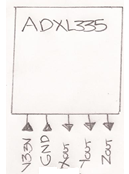 ADXL335
V33V
GND
Xout
Yout
Zout